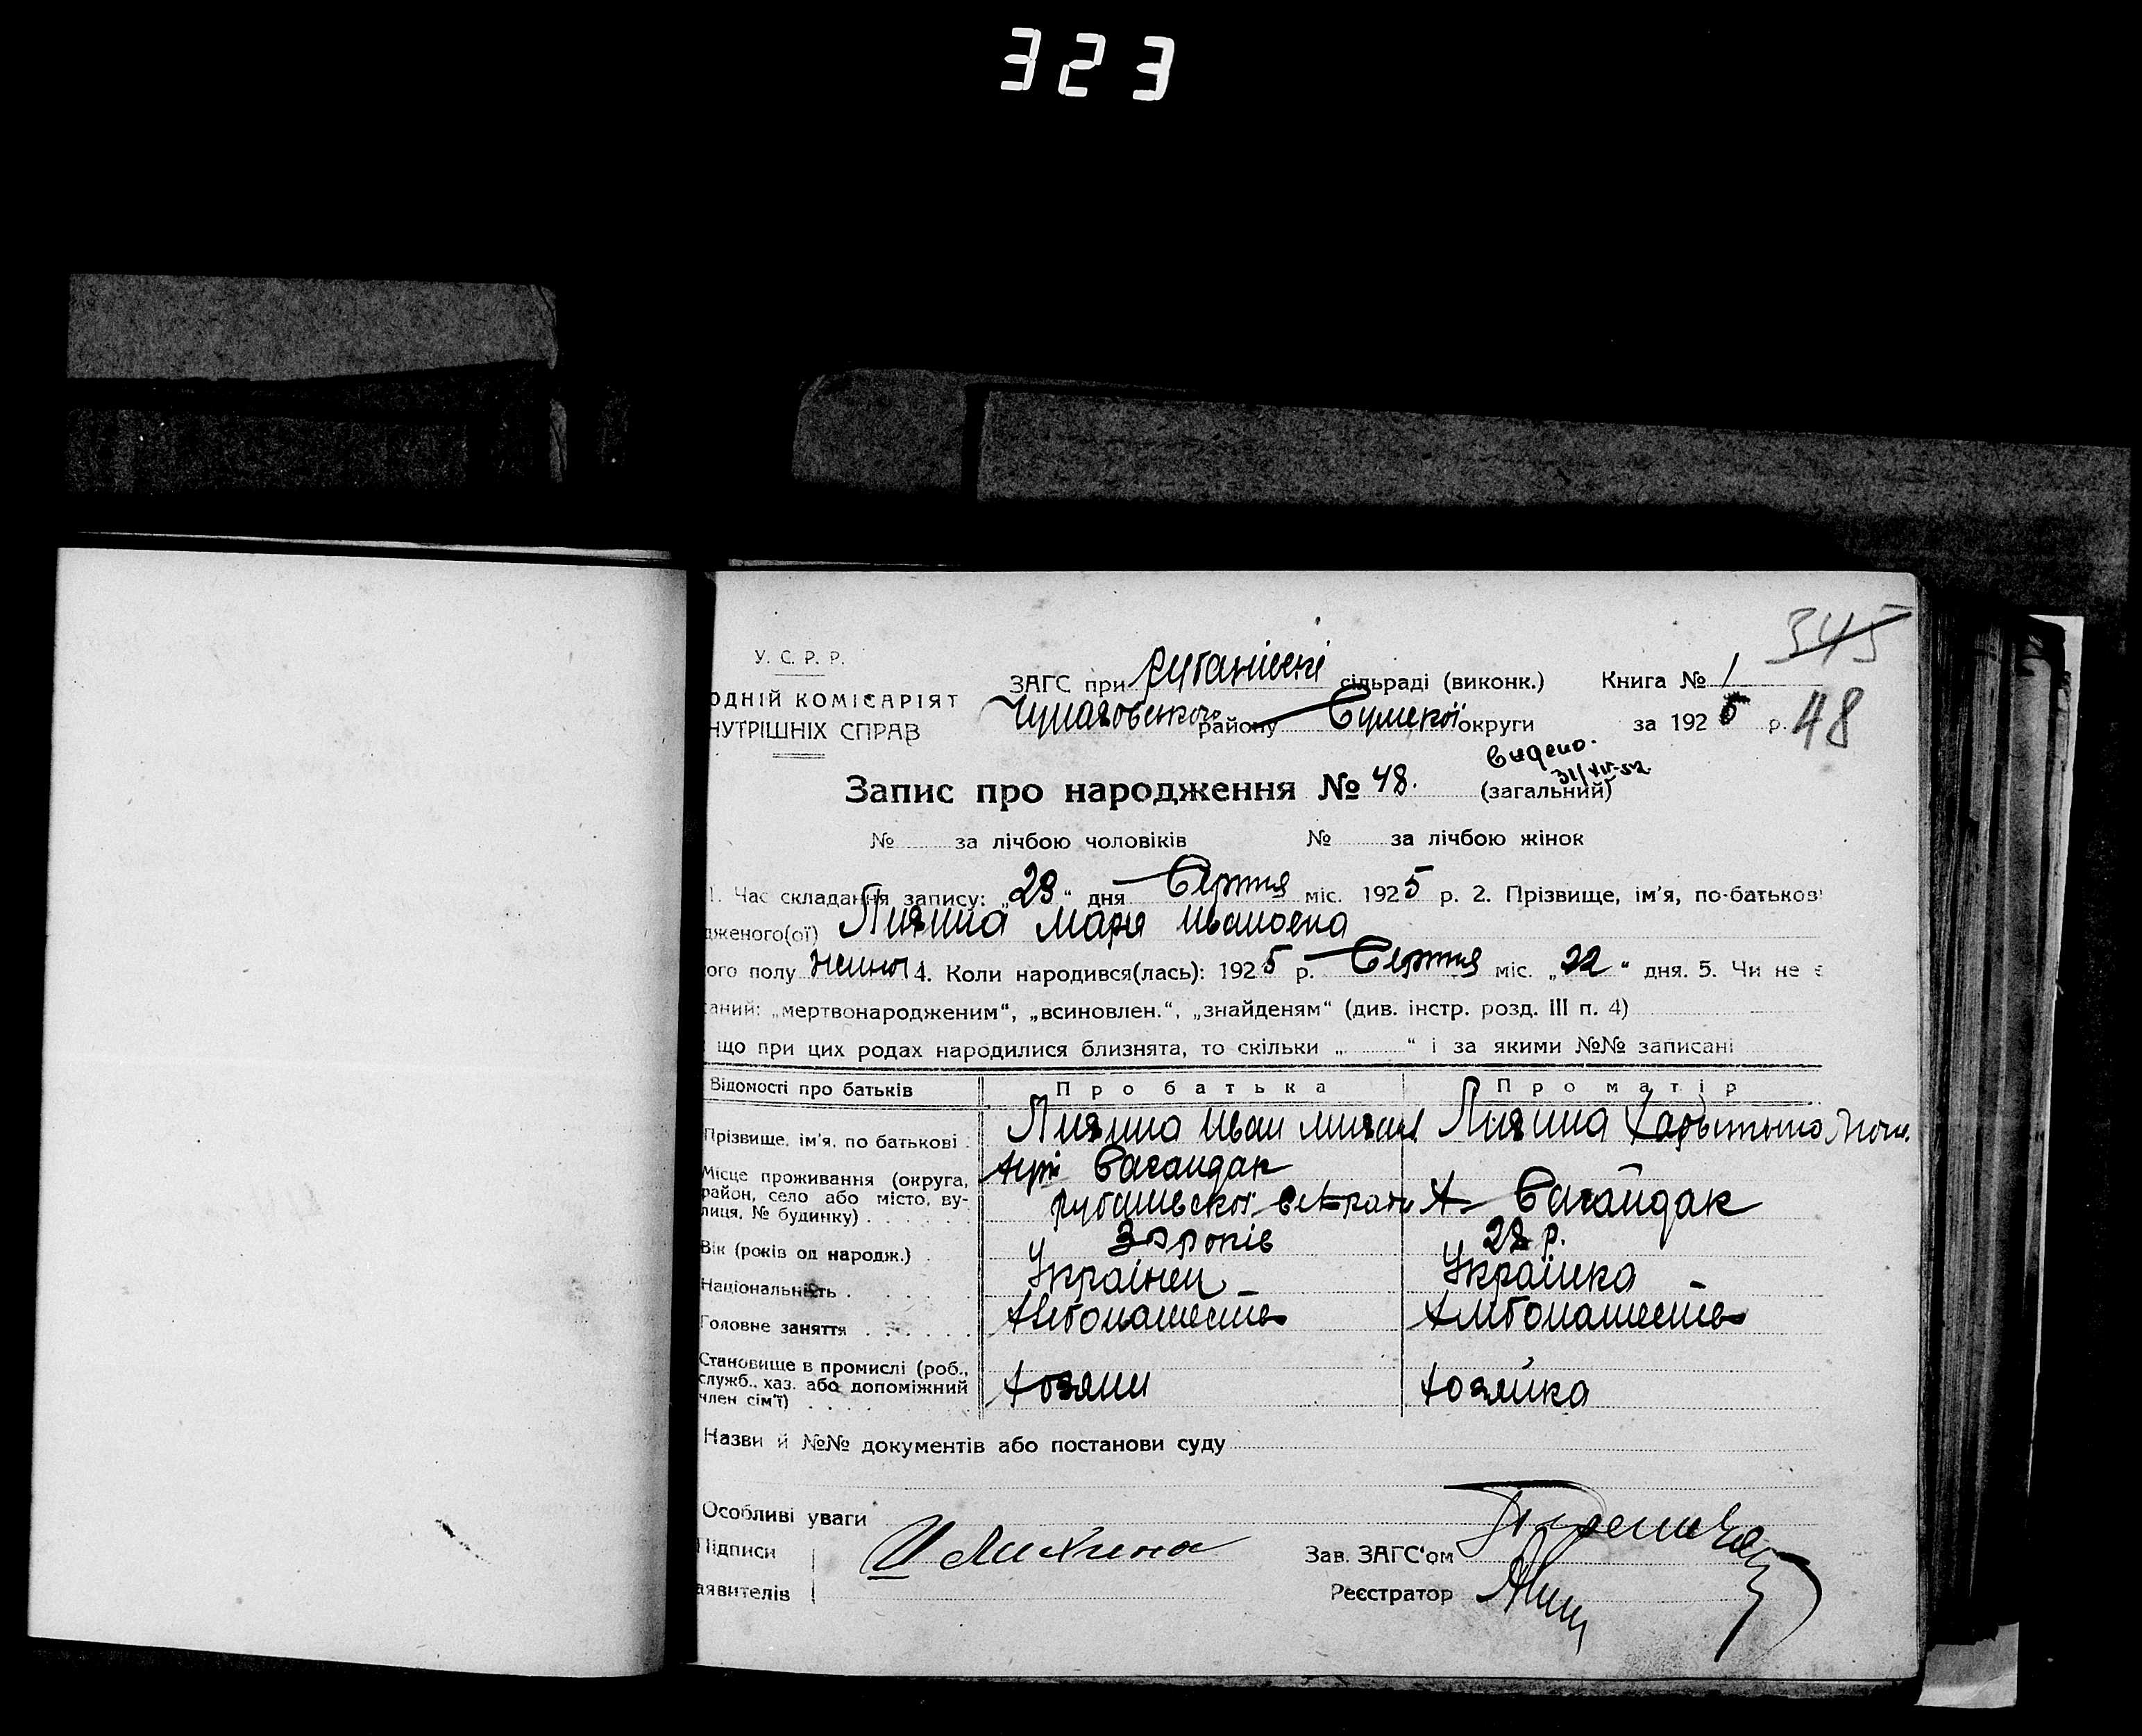 323
345
У. С. Р. Р.
ОДНІЙ КОМІСАРІЯТ
НУТРІШНІХ СПРАВ
ЗАГС при сільраді (виконк.) Книга № 1
району Сумської округи за 1925 р. 48
Видено.
31/XII-52
Запис про народження № 48. (загальний)
№ за лічбою чоловіків № за лічбою жінок
1. Час складання запису: „28“ дня Серпня міс. 1925 р. 2. Прізвище, ім'я, по-батьков
дженого(ої) Лихина Мария Ивановна
ого полу жиноч 4. Коли народився(лась): 1925 р. Серпня міс. „22“ дня. 5. Чи не є
саний: „мертвонародженим“, „всиновлен.“, „знайденям“ (див. інстр. розд. III п. 4)
що при цих родах народилися близнята, то скільки „ “ і за якими №№ записані
Відомості про батьків Про батька Про матір
Прізвище, ім'я, по батькові Лихина Иван Лихина
Місце проживання (округа, район, село або місто, вулиця, № будинку) Хут Сагайдак
Х. Сагайдак
Вік (років од народж.) років 28 р.
Національність Українец Українка
Головне заняття Хлібопашество Хлібопашество
Становище в промислі (роб., служб., хаз. або допоміжний член сім'ї) хозяин хозяйка
Назви й №№ документів або постанови суду
Особливі уваги
Підписи И Лихина Зав. ЗАГС'ом
аявителів Реєстратор